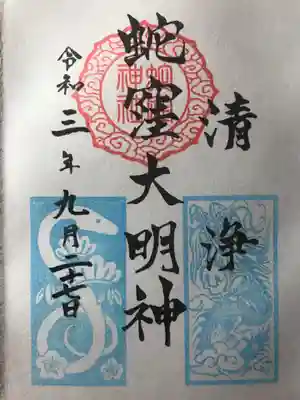 清浄
蛇窪大明神
令和三年九月二十七日